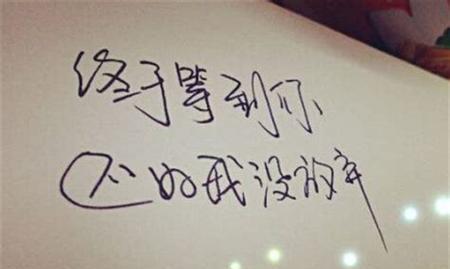 终于等到你
还好我没放弃